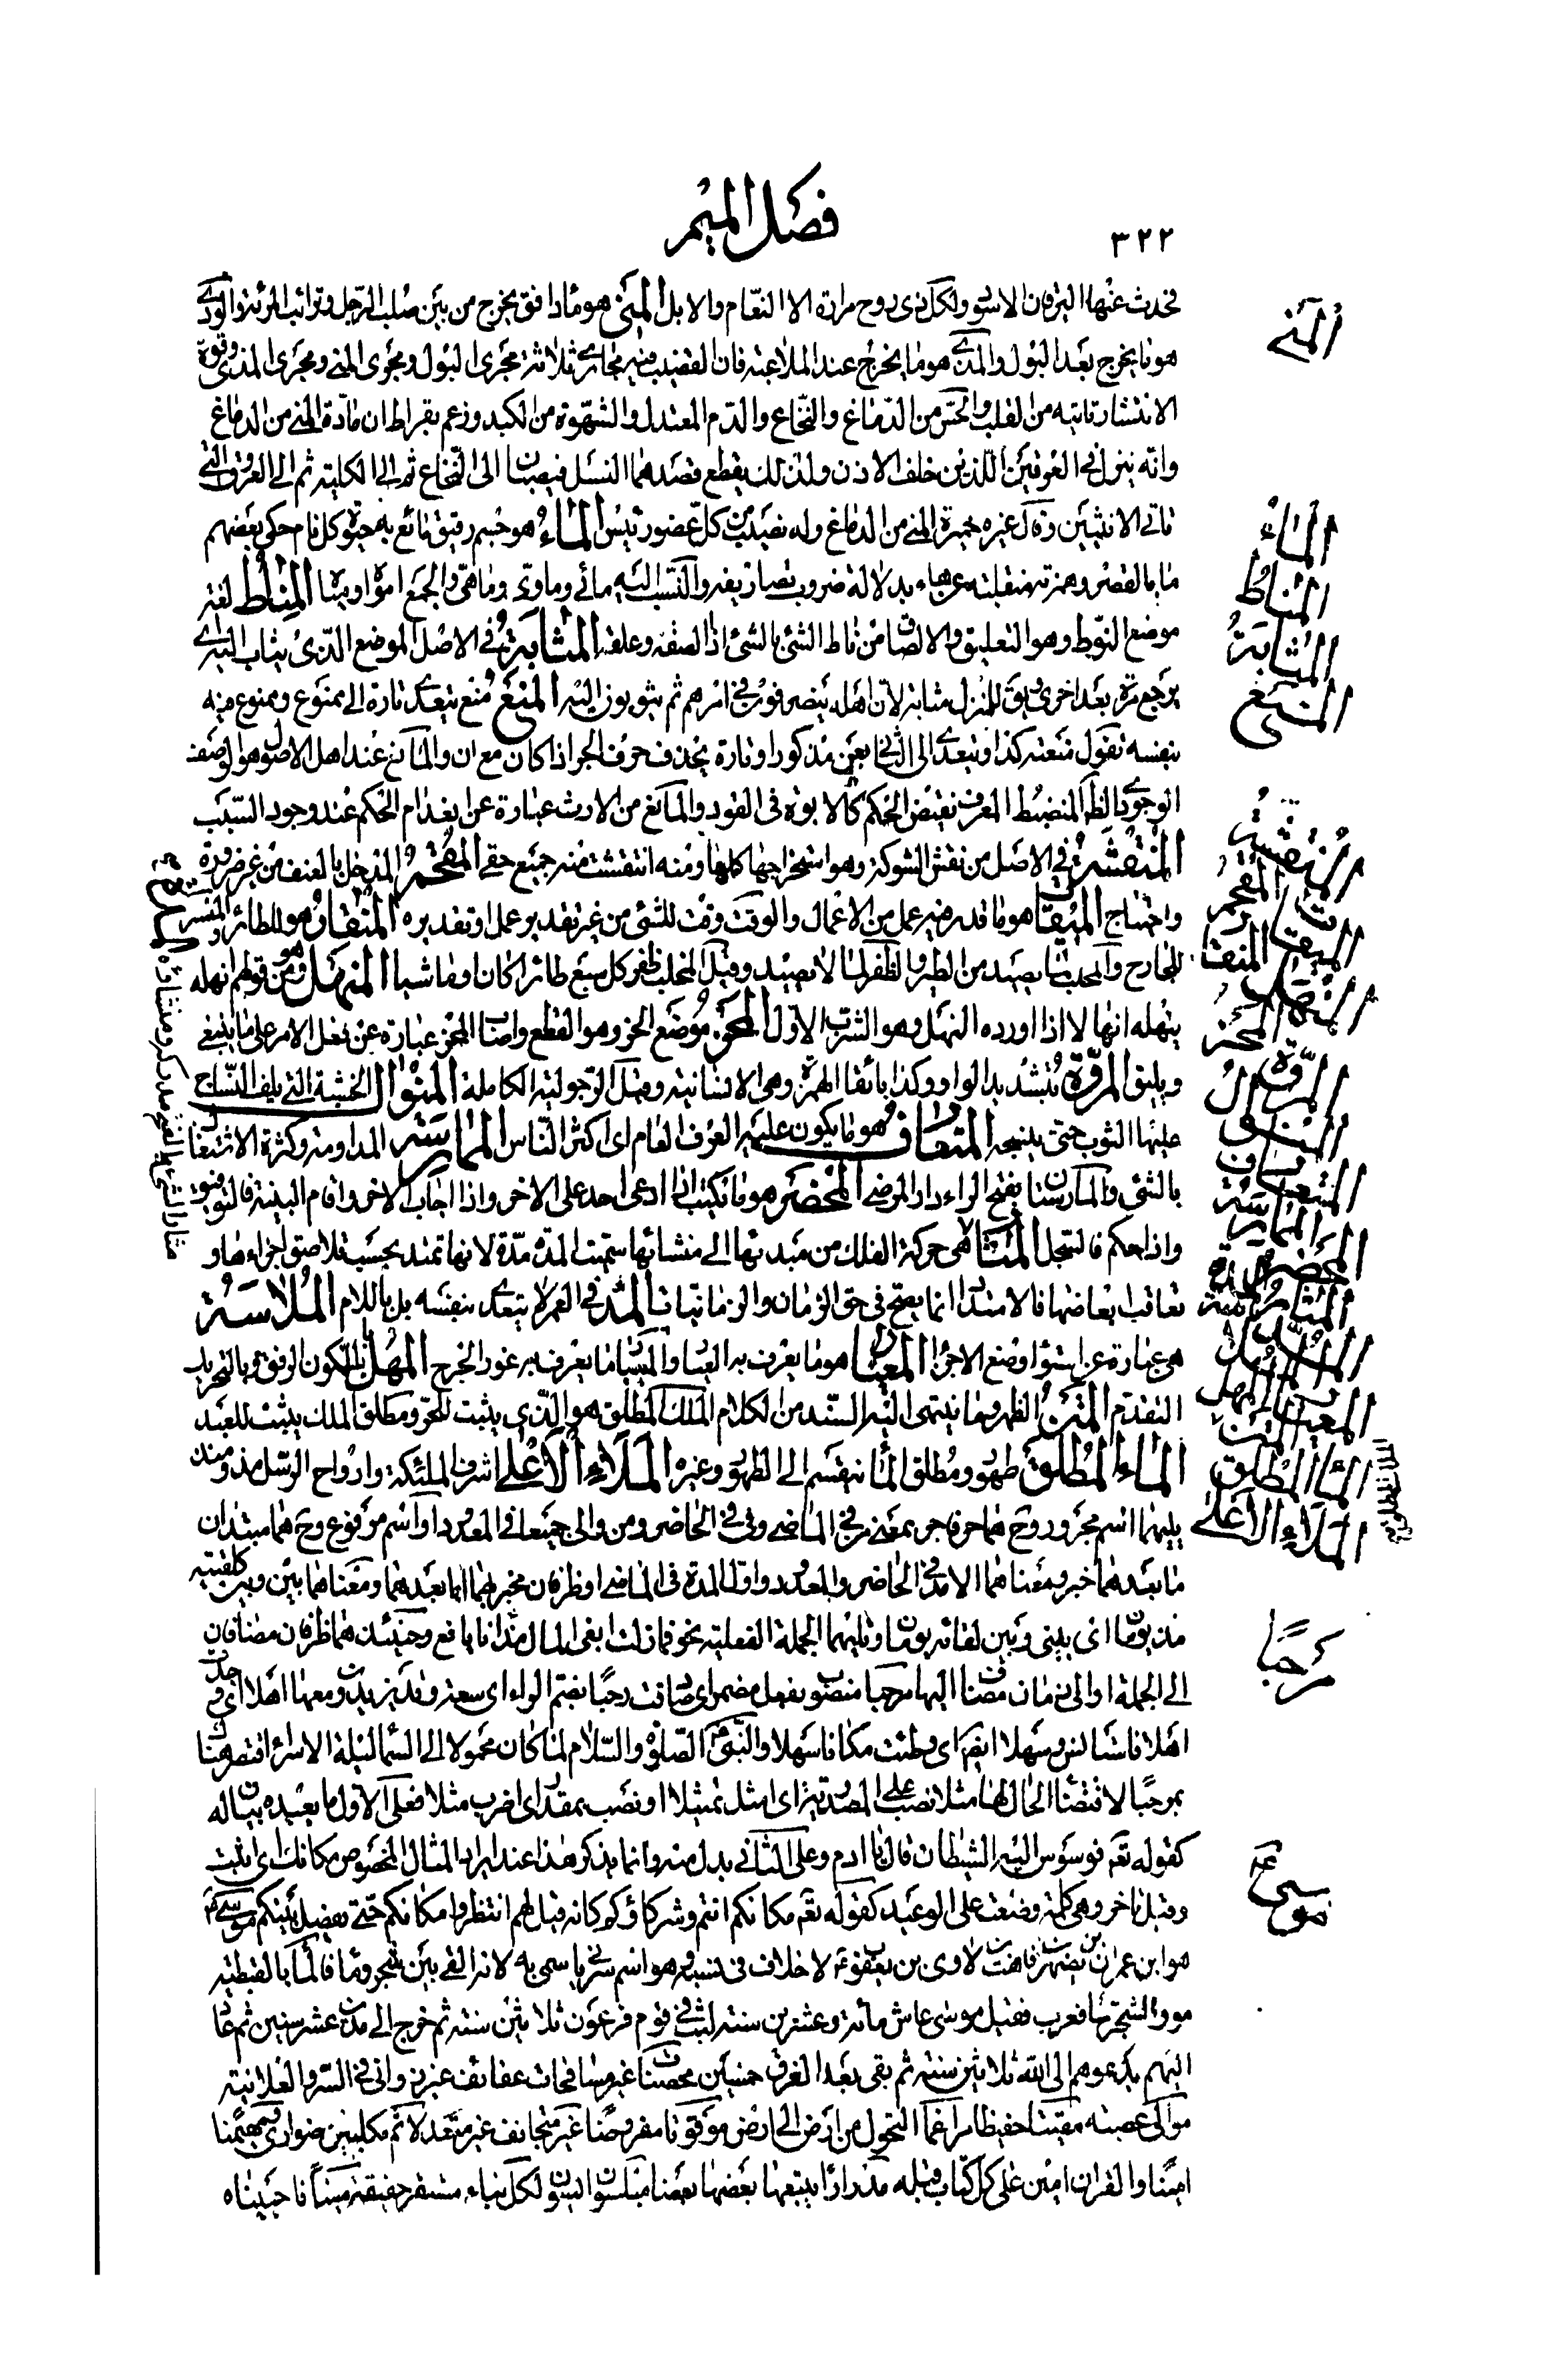 ٣٢٢
فصل الميم
تحدث عنها اليرقان الاسود ولكل ذى روح مرارة الا النعام والابل المنى هو ماء دافق يخرج من بين صلب الرجل وترائب المرئة والودى
هو ما يخرج بعد البول والمذى هو ما يخرج عند الملاعبة فان القضيب فيه مجارى ثلاثة مجرى البول ومجرى المنى ومجرى المذى وقوة
الانتشار تاتيه من القلب والحس من الدماغ والنخاع والدم المعتدل والشهوة من الكبد وزعم بقراط ان مادة المنى من الدماغ
وانه ينزل فى العرقين اللذين خلف الاذن ولذلك يقطع فصدهما النسل فيصبان الى النخاع ثم الى الكلية ثم الى العروق التى
تاتى الانثيين وقال غيره خميرة المنى من الدماغ وله نصيب من كل عضو رئيس الماء هو جسم رقيق مائع به حيوة كل نام حكى بعضهم
ما بالقصر وهمزته منقلبة عن هاء بدلالة ضروب تصاريفه والنسب اليه مائى وماوى وماهى والجمع امواه ومياه المناط لغة
موضع النوط وهو التعليق والالصاق من ناط الشئ بالشئ اذا الصقه وعلقه المثابة فى الاصل الموضع الذى يثاب اليه اى
يرجع مرة بعد اخرى ويق للمنزل مثابة لان اهله ينصرفون فى امرهم ثم يثوبون اليه المنع منع يتعدى تارة الى ممنوع وممنوع منه
بنفسه تقول منعته كذا ويتعدى الى الثانى بعن مذكورا وتارة يحذف حرف الجر اذا كان مع ان والمانع عند اهل الاصول هو الوصف
الوجودى الظاهر المنضبط المعرف نقيض الحكم كالابوة فى القود والمانع من الارث عبارة عن انعدام الحكم عند وجود السبب
المنتقشة فى الاصل من نقش الشوكة وهو استخراجها كلها ومنه انتقشت منه جميع حقى المقحم المدخل بالعنف من غير ضرورة
واحتياج الميقات هو ما قدر فيه عمل من الاعمال والوقت وقت للشئ من غير تقدير عمل او تقديره المنقار هو للطائر والمنسر
للجارح والمخلب لما يصيد من الطير والظفر لما لا يصيد وقيل المخلب ظفر كل سبع طائرا كان او ماشيا المنهل هو من قولهم انهله
ينهله انهالا اذا اورده النهل وهو الشرب الاول المحز موضع الحز وهو القطع واصاب المحز عبارة عن فعل الامر على ما ينبغى
ويليق المروة بتشديد الواو وكذا بابقاء الهمزة وهى الانسانية وقيل الرجولية الكاملة المنوال الخشبة التى يلف النساج
عليها الثوب حتى ينسجه المتعارف هو ما يكون عليه العرف العام اى اكثر الناس الممارسة المداومة وكثرة الاشتغال
بالشئ والمارستان بفتح الراء دار المرضى المحضر هو ما يكتب اذا ادعى احد على الاخر واذا اجاب الاخر واقام البينة فالتوقيع
واذا حكم فالسجل هى حركة الفلك من مبدئها الى منشائها سميت المدة مدة لانها تمتد بحسب تلاصق اجزاءها و
تعاقب ابعاضها فالامتداد انما يصح فى حق الزمان والزمانيات المد فى العمر لا يتعدى بنفسه بل باللام الملاسة
هى عبارة عن استواء وضع الاجزاء المعيار هو ما يعرف به العيار والمسبار ما يعرف به غور الجرح المهل بالسكون الرفق وبالتحريك
التقدم المتن الظهر وما ينتهى اليه السند من الكلام الملك المطلق هو الذى يثبت للحر ومطلق الملك يثبت للعبد
الماء المطلق طهور ومطلق الماء ينقسم الى الطهور وغيره الملاء الاعلى اشراف الملئكة وارواح الرسل مذ ومنذ
يليهما اسم مجرور وح هما حرفا جر بمعنى من فى الماضى وفى فى الحاضر ومن والى جميعا فى المعدود او اسم مرفوع وح هما مبتدان
ما بعدهما خبر ومعناهما الامد فى الحاضر والمعدود واول المدة فى الماضى او ظرفان مخبر بهما عما بعدهما ومعناهما بين وبين كلقيته
مذ يومان اى بينى وبين لقائه يومان وتليهما الجملة الفعلية نحو فما زلت ابغى المال مذ انا يافع وحينئذ هما ظرفان مضافان
الى الجملة او الى زمان مضاف اليها مرحبا منصوب بفعل مضمر اى صادفت رحبا بضم الراء اى سعة وقد يزيدون معها اهلا اى وجدت
اهلا فاستانس وسهلا ايضا اى وطئت مكانا سهلا والنبى الصلوة والسلام لما كان محمولا الى السماء ليلة الاسراء اقتصر هنا
بمرحبا لاقتضاء الحال لها مثلا نصب على المصدرية اى امثل تمثيلا او نصب بمقدر اى اضرب مثلا فعلى الاول ما بعده بيان له
كقوله تعم فوسوس اليه الشيطان قال يا ادم وعلى الثانى بدل منه وانما يذكر هذا عند ايراد المثال المخصوص مكانك اى اثبت
وقيل تاخر وهى كلمة وضعت على الوعيد كقوله تعم مكانكم انتم وشركاؤكم كانه قيل لهم انتظروا مكانكم حتى يفصل بينكم موسى
هو ابن عمران بن يصهر بن قاهث بن لاوى بن يعقوب لا خلاف فى نسبه وهو اسم سريانى سمى به لانه القى بين شجر وماء فالماء بالقبطية
مو والشجر شا فعرب فقيل موسى عاش مائة وعشرين سنة لبث فى قوم فرعون ثلاثين سنة ثم خرج الى مدين عشر سنين ثم عاد
اليهم يدعوهم الى الله ثلاثين سنة ثم بقى بعد الغرق خمسين محصنات غير مسافحات عفائف غير زوانى فى السر والعلانية
موالى عصبة مقيتا حفيظا مراغما التحول من ارض الى ارض موقوتا مفروضا غير متجانف غير متعد لاثم مكلبين ضوارى مهيمنا
امينا والقران امين على كل كتاب قبله مدرارا يتبعها بعضها بعضا مبلسون ايسون لكل نباء مستقر حقيقة ميتا فاحييناه
المنى
الماء
المناط
المثابة
المنع
المنتقشة
المقحم
الميقات
المنقار
المنهل
المحز
المروة
المنوال
المتعارف
الممارسة
المحضر
المعيار
المهل
المتن
الماء المطلق
الملاء الاعلى
مرحبا
موسى